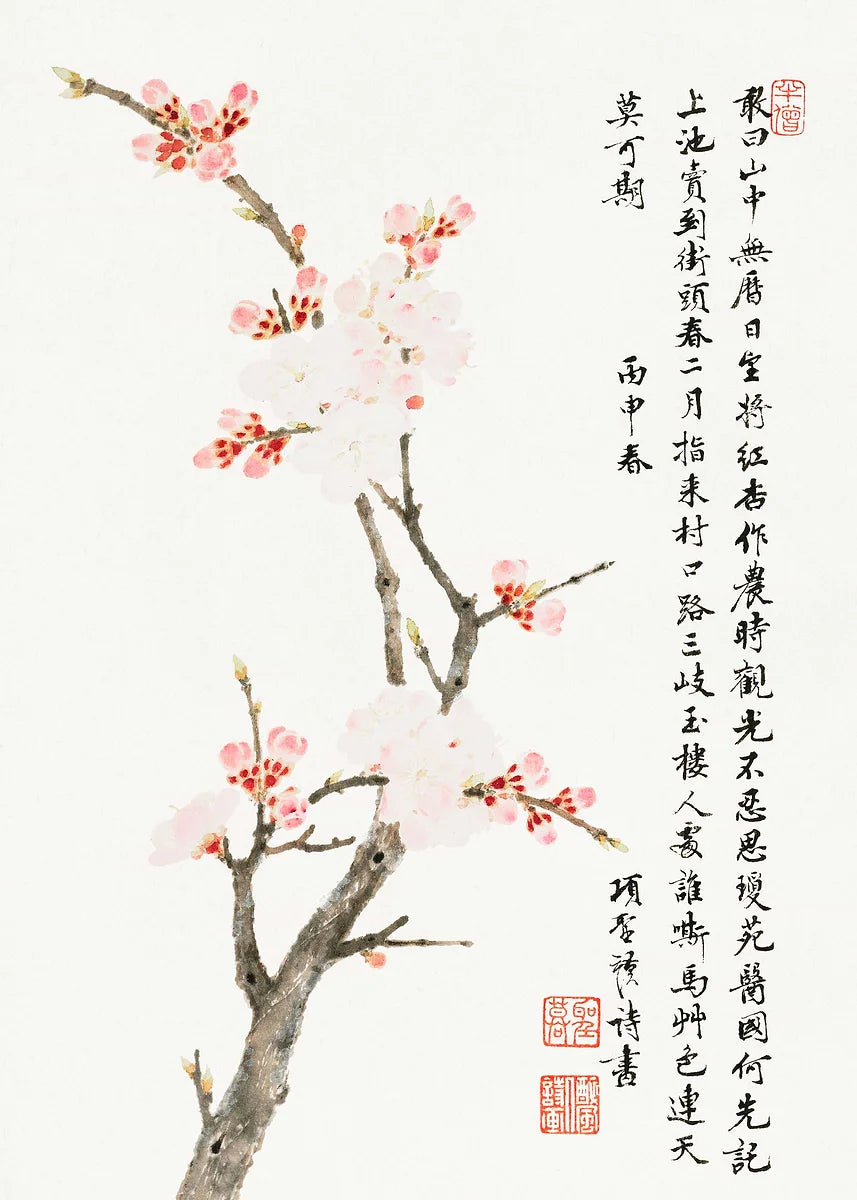 敢曰山中無曆日空將紅杏作農時觀光不忍思瓊苑醫國何先記
上池賣到街頭春二月指来村口路三岐玉樓人處誰嘶馬艸色連天
莫可期
丙申春
項聖謨詩畫